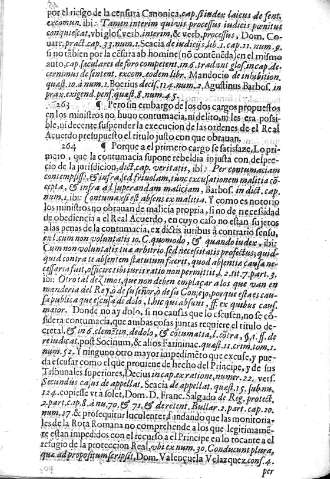 por el riesgo de la censura Canonica, cap. si index laicus de sent.
excomun. ibi: Tamen interim quivis processus iudicis pœnitus
conquiescat, vbi glos. verb. interim, & verb. processus, Dom. Co-
uar. pract. cap. 33. num. 1. Scacia de iudicijs lib. 1. cap. 11. num. 9.
si no tábien por la césura ab homine (no contenida) en el mismo
auto, cap. seculares de foro competent. in 6. tradunt glos. in cap. de-
cernimus de sentent. excom. eodem libr. Mandocio de inhibition.
quæst. 10. à num. 1. Boerius deci. 124. num. 2. Agustinus Barbos. in
prax. exigend. pens. quæst. 8. num. 45.
263 ¶ Pero sin embargo de los dos cargos propuestos
en los ministros no huuo contumacia, ni delito, ni les era possi-
ble, ni decente suspender la execucion de las ordenes de el Real
Acuerdo presupuesto el titulo justo con que obrauan.
264 ¶ Porque a el primero cargo se satisface. Lo pri-
mero, que la contumacia supone rebeldia injusta con despre-
cio de la jurisdicion, dict. cap. veritatis, ibi: Per contumaciam
contempsissit, & infra, ad
cepta, & infra ad superandam maliciam, Barbos. in dict. cap.
num. 1. ibi: Contumax est absens ex malitia. Y como es notorio
los ministros no obrauan de malicia propria, si no de necesidad
de obediencia a el Real Acuerdo, en cuyo caso no estàn sujetos
a las penas de la contumacia, ex dictis iuribus à contrario sensu,
ex l. cum non voluntatis 10. C. quomodo, & quando iudex, ibi:
Cum non voluntatis tua arbitrio sed necessitatis profectus, quid-
quid contra te absentem statutum fuerit, quod absentia causa ne-
cessaria fuit, officere tibi iuris ratio non permittit, l. 2. tit. 7. part. 3.
ibi: Otro tal dezimos, que non deben emplaçar a los que van en
mandaderia del Rey, ò de su señor, ò de su Concejo, porque esta es cau-
sa publica que escusa di dolo, l. hic qui absuit, ff. ex quibus cauf.
maior. Donde no ay dolo, si no causas que lo escusen, no se co-
sidera contumacia, que ambas cosas juntas requiere el titulo de-
cretal, & in 6. clementin. de dolo, & cotumatia, l. contra, §. 1. ff. de
re iudicat. post Socinum, & alios Farinnac. quæst. 11. crim. tom. 1.
num. 52. Y ninguno otro mayor impedimẽto que excuse, y pue-
da escusar como el que prouiene de hecho del Principe, y de sus
Tribunales superiores, Decius in cap. ex ratione, numer. 22. vers.
Secundus cajus de appellat. Scacia de appellat. quæst. 15. sub num.
124. copiosè vt solet, Dom. D. Franc. Salgad. de Reg. protect.
2. part. cap. 8. à nu. 70. & 71. & de retent. Bullar. 2. part. cap. 10.
num. 17. & prosequitur luculenter fundando que las monitoria-
les de la Rota Romana no comprehende a los que legitimamẽ-
te estan impedidos con el recurso a el Principe en lo tocante a el
refugio de la proteccion Real, vbi ex num. 30. Conducunt plura,
que ad propositum scripsit, Dom. Valençuela Velazquez cons. 4.
per